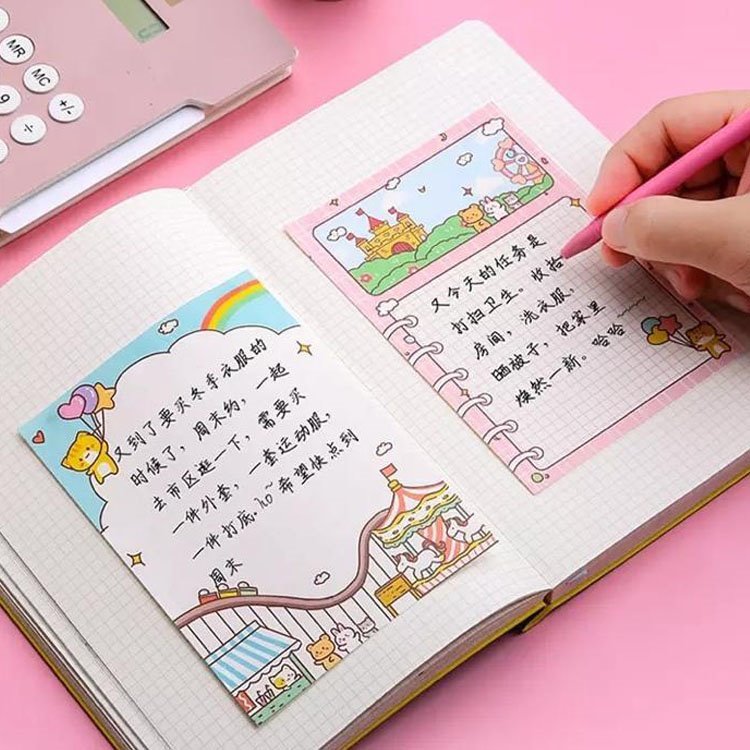 MR
MC
9
+/-
÷
又到了要买冬季衣服的
时候了，周末约，一起
去市区逛一下，需要买
一件外套，一套运动服，
一件打底。ho~希望快点到
周末
又今天的任务是
打扫卫生。收拾
房间，洗衣服，
晒被子，把家里
焕然一新。哈哈